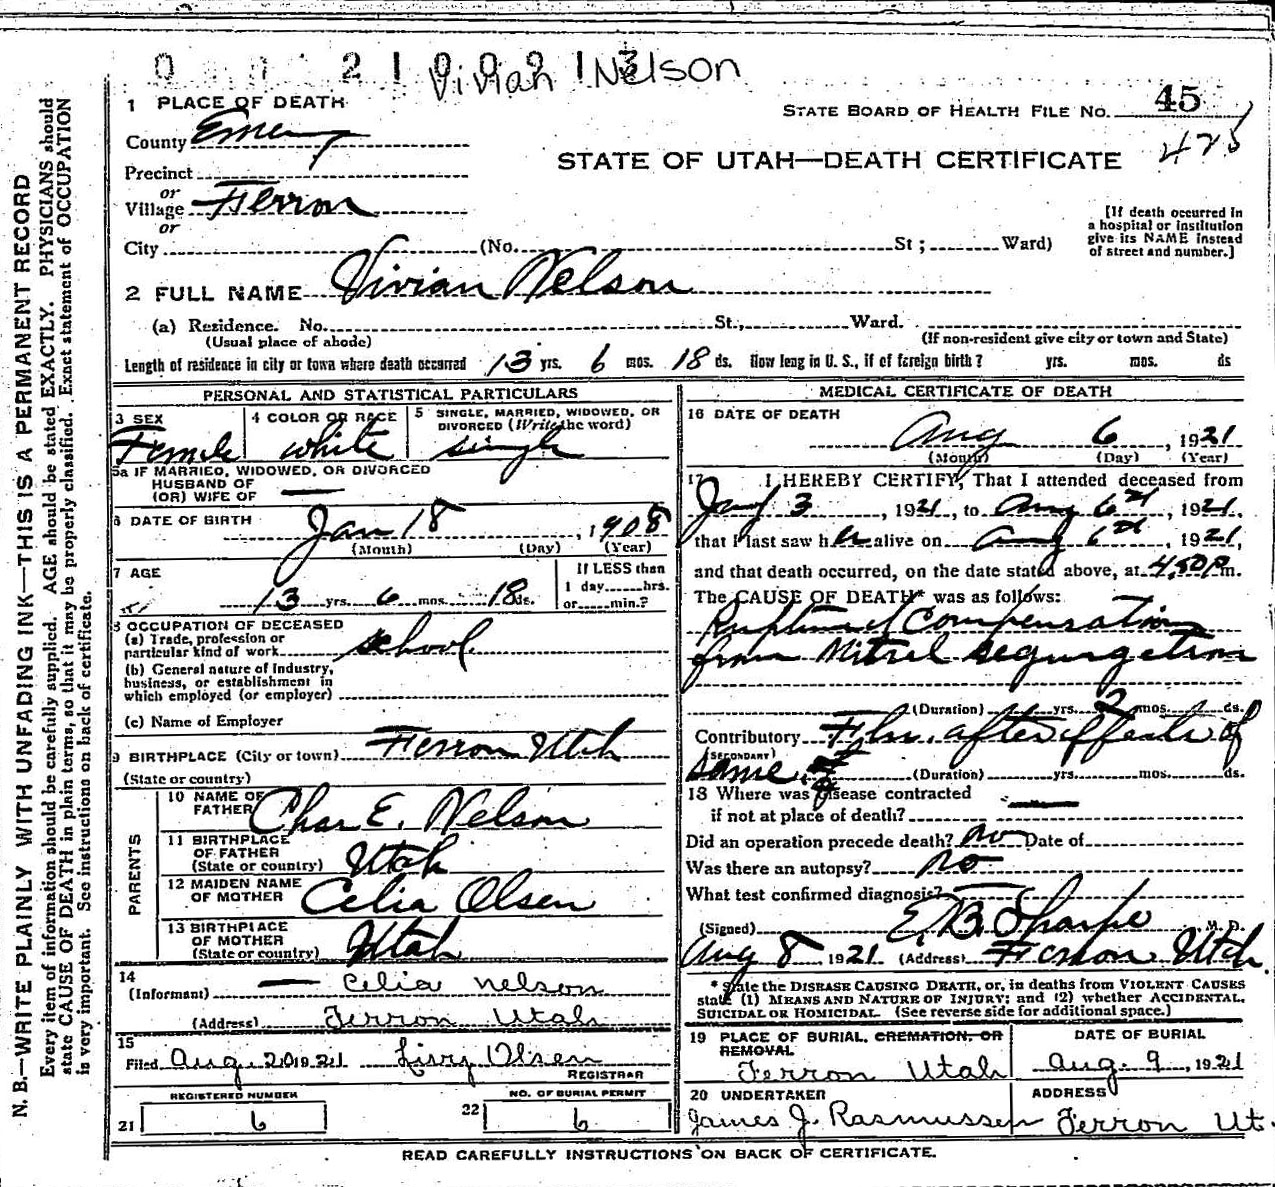 Vivian Nelson
1 PLACE OF DEATH
STATE BOARD OF HEALTH FILE NO. 45
County Emery
425
STATE OF UTAH—DEATH CERTIFICATE
Precinct
or
Village Ferron
or
[If death occurred in a hospital or institution give its NAME instead of street and number.]
City (No. St ; Ward)
2 FULL NAME Vivian Nelson
(a) Residence. No. St., Ward.
(Usual place of abode) (If non-resident give city or town and State)
Length of residence in city or town where death occurred 13 yrs. 6 mos. 18 ds. How long in U. S., if of foreign birth? yrs. mos. ds
PERSONAL AND STATISTICAL PARTICULARS
3 SEX 4 COLOR OR RACE 5 SINGLE, MARRIED, WIDOWED, OR DIVORCED (Write the word)
Female white single
5a IF MARRIED, WIDOWED, OR DIVORCED
HUSBAND OF
(OR) WIFE OF —
6 DATE OF BIRTH Jan 18, 1908
(Month) (Day) (Year)
7 AGE If LESS than
1 day hrs.
13 yrs. 6 mos. 18 ds. or min.?
8 OCCUPATION OF DECEASED
(a) Trade, profession or
particular kind of work school
(b) General nature of industry,
business, or establishment in
which employed (or employer)
(c) Name of Employer
9 BIRTHPLACE (City or town) Ferron Utah
(State or country)
PARENTS
10 NAME OF
FATHER Chas E. Nelson
11 BIRTHPLACE
OF FATHER
(State or country) Utah
12 MAIDEN NAME
OF MOTHER Celia Olsen
13 BIRTHPLACE
OF MOTHER
(State or country) Utah
14
(Informant) — Celia Nelson
(Address) Ferron Utah
15
Filed Aug. 20 1921 Olsen
REGISTRAR
REGISTERED NUMBER NO. OF BURIAL PERMIT
21 6 22 6
MEDICAL CERTIFICATE OF DEATH
16 DATE OF DEATH
Aug 6, 1921
(Month) (Day) (Year)
17 I HEREBY CERTIFY, That I attended deceased from
3, 1921, to Aug 6th, 1921,
that I last saw her alive on Aug 6th, 1921,
and that death occurred, on the date stated above, at 4,50 P m.
The CAUSE OF DEATH* was as follows:
Ruptured Compensation
from Mitral regurgetation
(Duration) yrs. 2 mos. ds.
Contributory Flu. after effects of
(SECONDARY)
same. (Duration) yrs. mos. ds.
18 Where was disease contracted
if not at place of death? —
Did an operation precede death? no Date of
Was there an autopsy? no
What test confirmed diagnosis? —
(Signed) E. B. Sharpe M. D.
Aug 8 1921 (Address) Ferron Utah.
* State the DISEASE CAUSING DEATH, or, in deaths from VIOLENT CAUSES
state (1) MEANS AND NATURE OF INJURY; and (2) whether ACCIDENTAL,
SUICIDAL OR HOMICIDAL. (See reverse side for additional space.)
19 PLACE OF BURIAL, CREMATION, OR REMOVAL DATE OF BURIAL
Ferron Utah Aug. 9, 1921
20 UNDERTAKER ADDRESS
James J. Rasmussen Ferron Ut.
READ CAREFULLY INSTRUCTIONS ON BACK OF CERTIFICATE.
N. B.—WRITE PLAINLY WITH UNFADING INK—THIS IS A PERMANENT RECORD
Every item of information should be carefully supplied. AGE should be stated EXACTLY. PHYSICIANS should
state CAUSE OF DEATH in plain terms, so that it may be properly classified. Exact statement of OCCUPATION
is very important. See instructions on back of certificate.